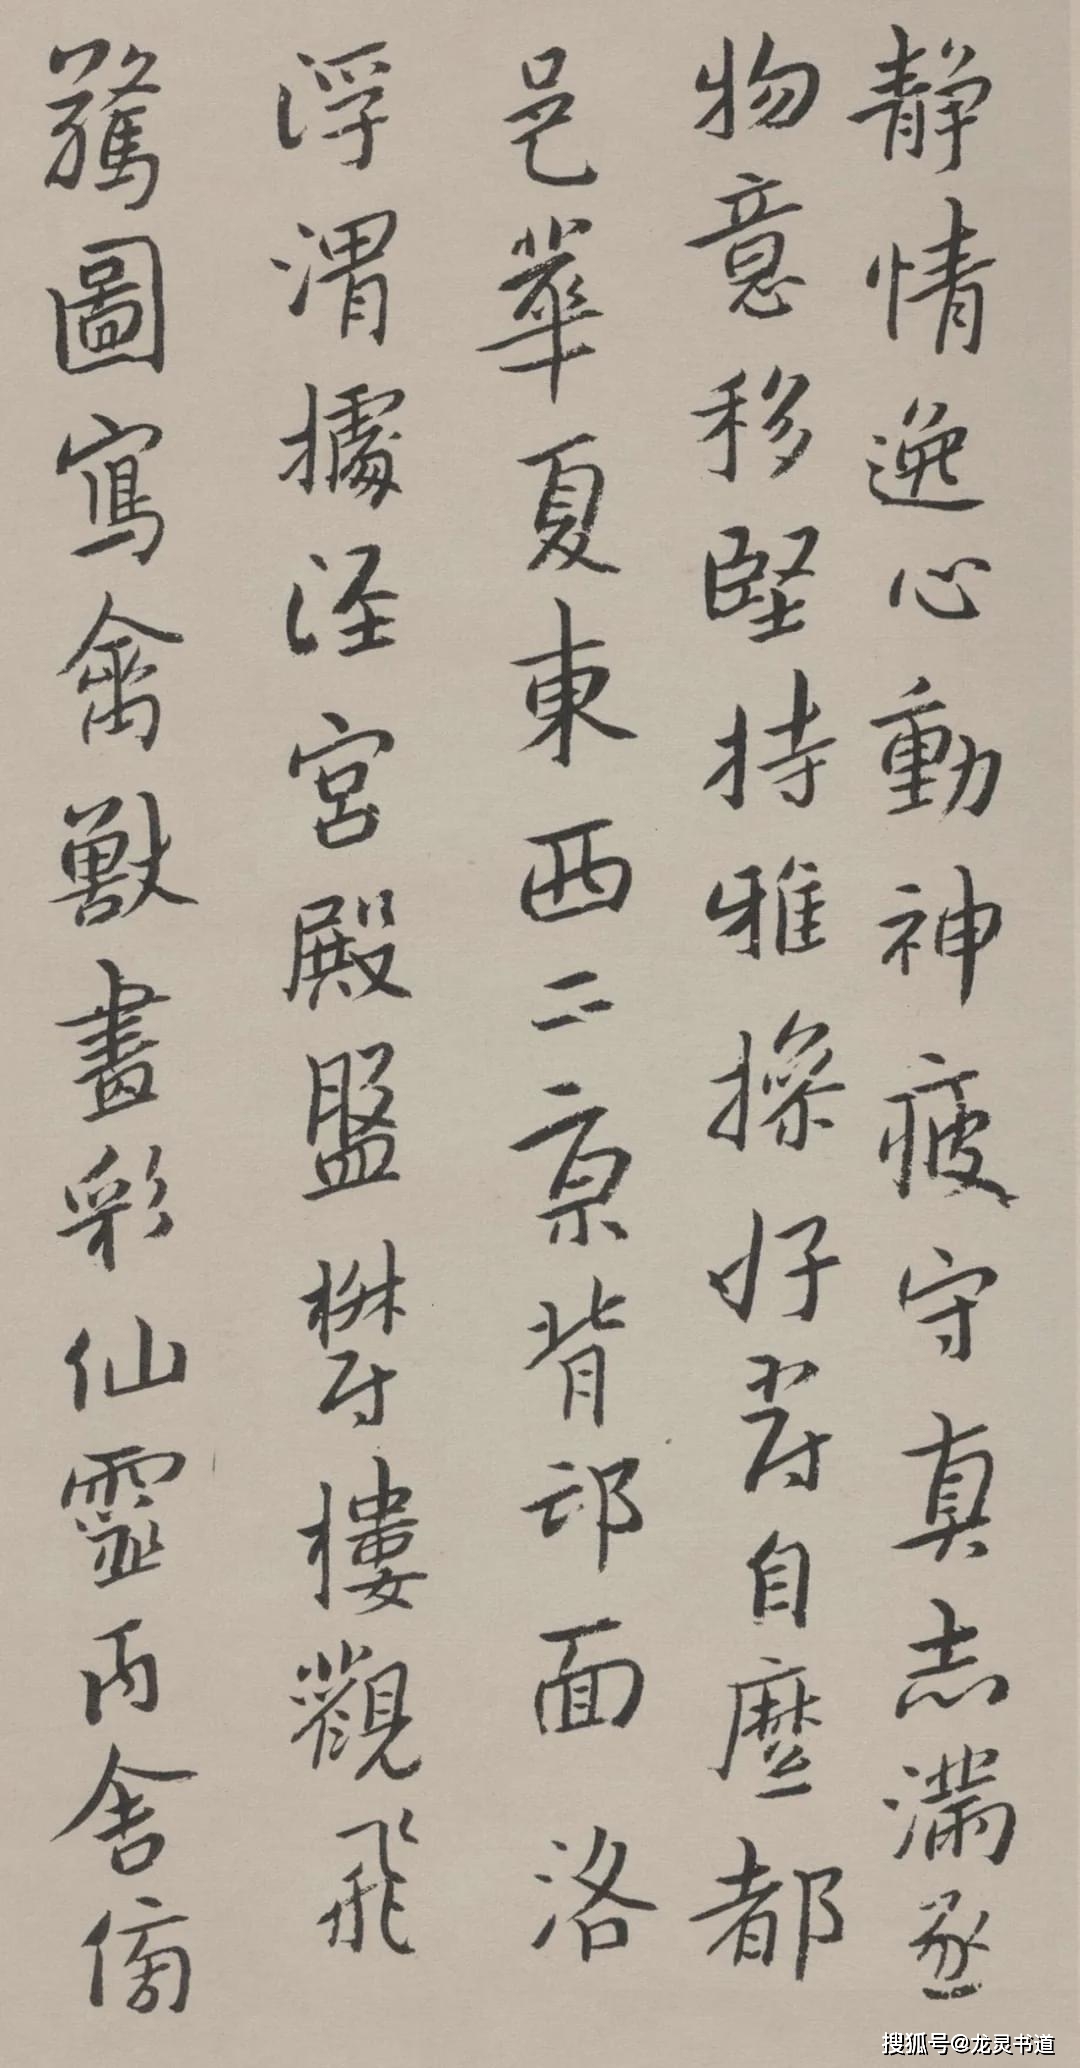 静情逸心動神疲守真志滿逐
物意移堅持雅操好爵自縻都
邑華夏東西二京背邙面洛
浮渭據涇宮殿盤欝樓觀飛
驚圖寫禽獸畫彩仙靈丙舍傍
搜狐号@龙灵书道